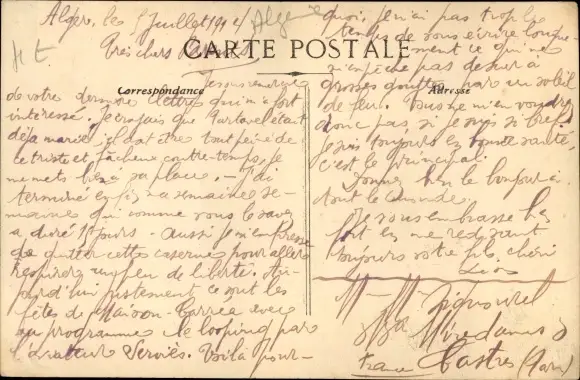 Alger, les 5 Juillet 1914
Algérie
Très chers Parents
CARTE POSTALE
Correspondance
Adresse
Je vous remercie
de votre dernière lettre qui m'a fort
intéressé. Je croyais que était
déjà marié, il doit être tout peiné de
ce triste et fâcheux contre-temps, je
me mets bien à sa place. - J'ai
terminé enfin ma semaine, se-
maine qui comme vous le savez
a duré jours - Aussi je m'empresse
de quitter cette caserne pour aller
respirer un peu de liberté. Au-
jourd'hui justement ce sont les
fêtes de Maison-Carrée avec
au programme le looping par
l'aviateur Servies. Voilà pour-
quoi, je n'ai pas trop le
temps de vous écrire longue-
ment ce qui ne
m'empêche pas de suer à
grosses gouttes par un soleil
de feu. Vous ne m'en voudrez
donc pas, si je suis si bref
Je suis toujours en bonne santé,
c'est le principal.
Donnez bien le bonjour à
tout le monde.
Je vous embrasse bien
fort en me redisant
toujours votre fils chéri
Léon
Castres (Tarn)
France